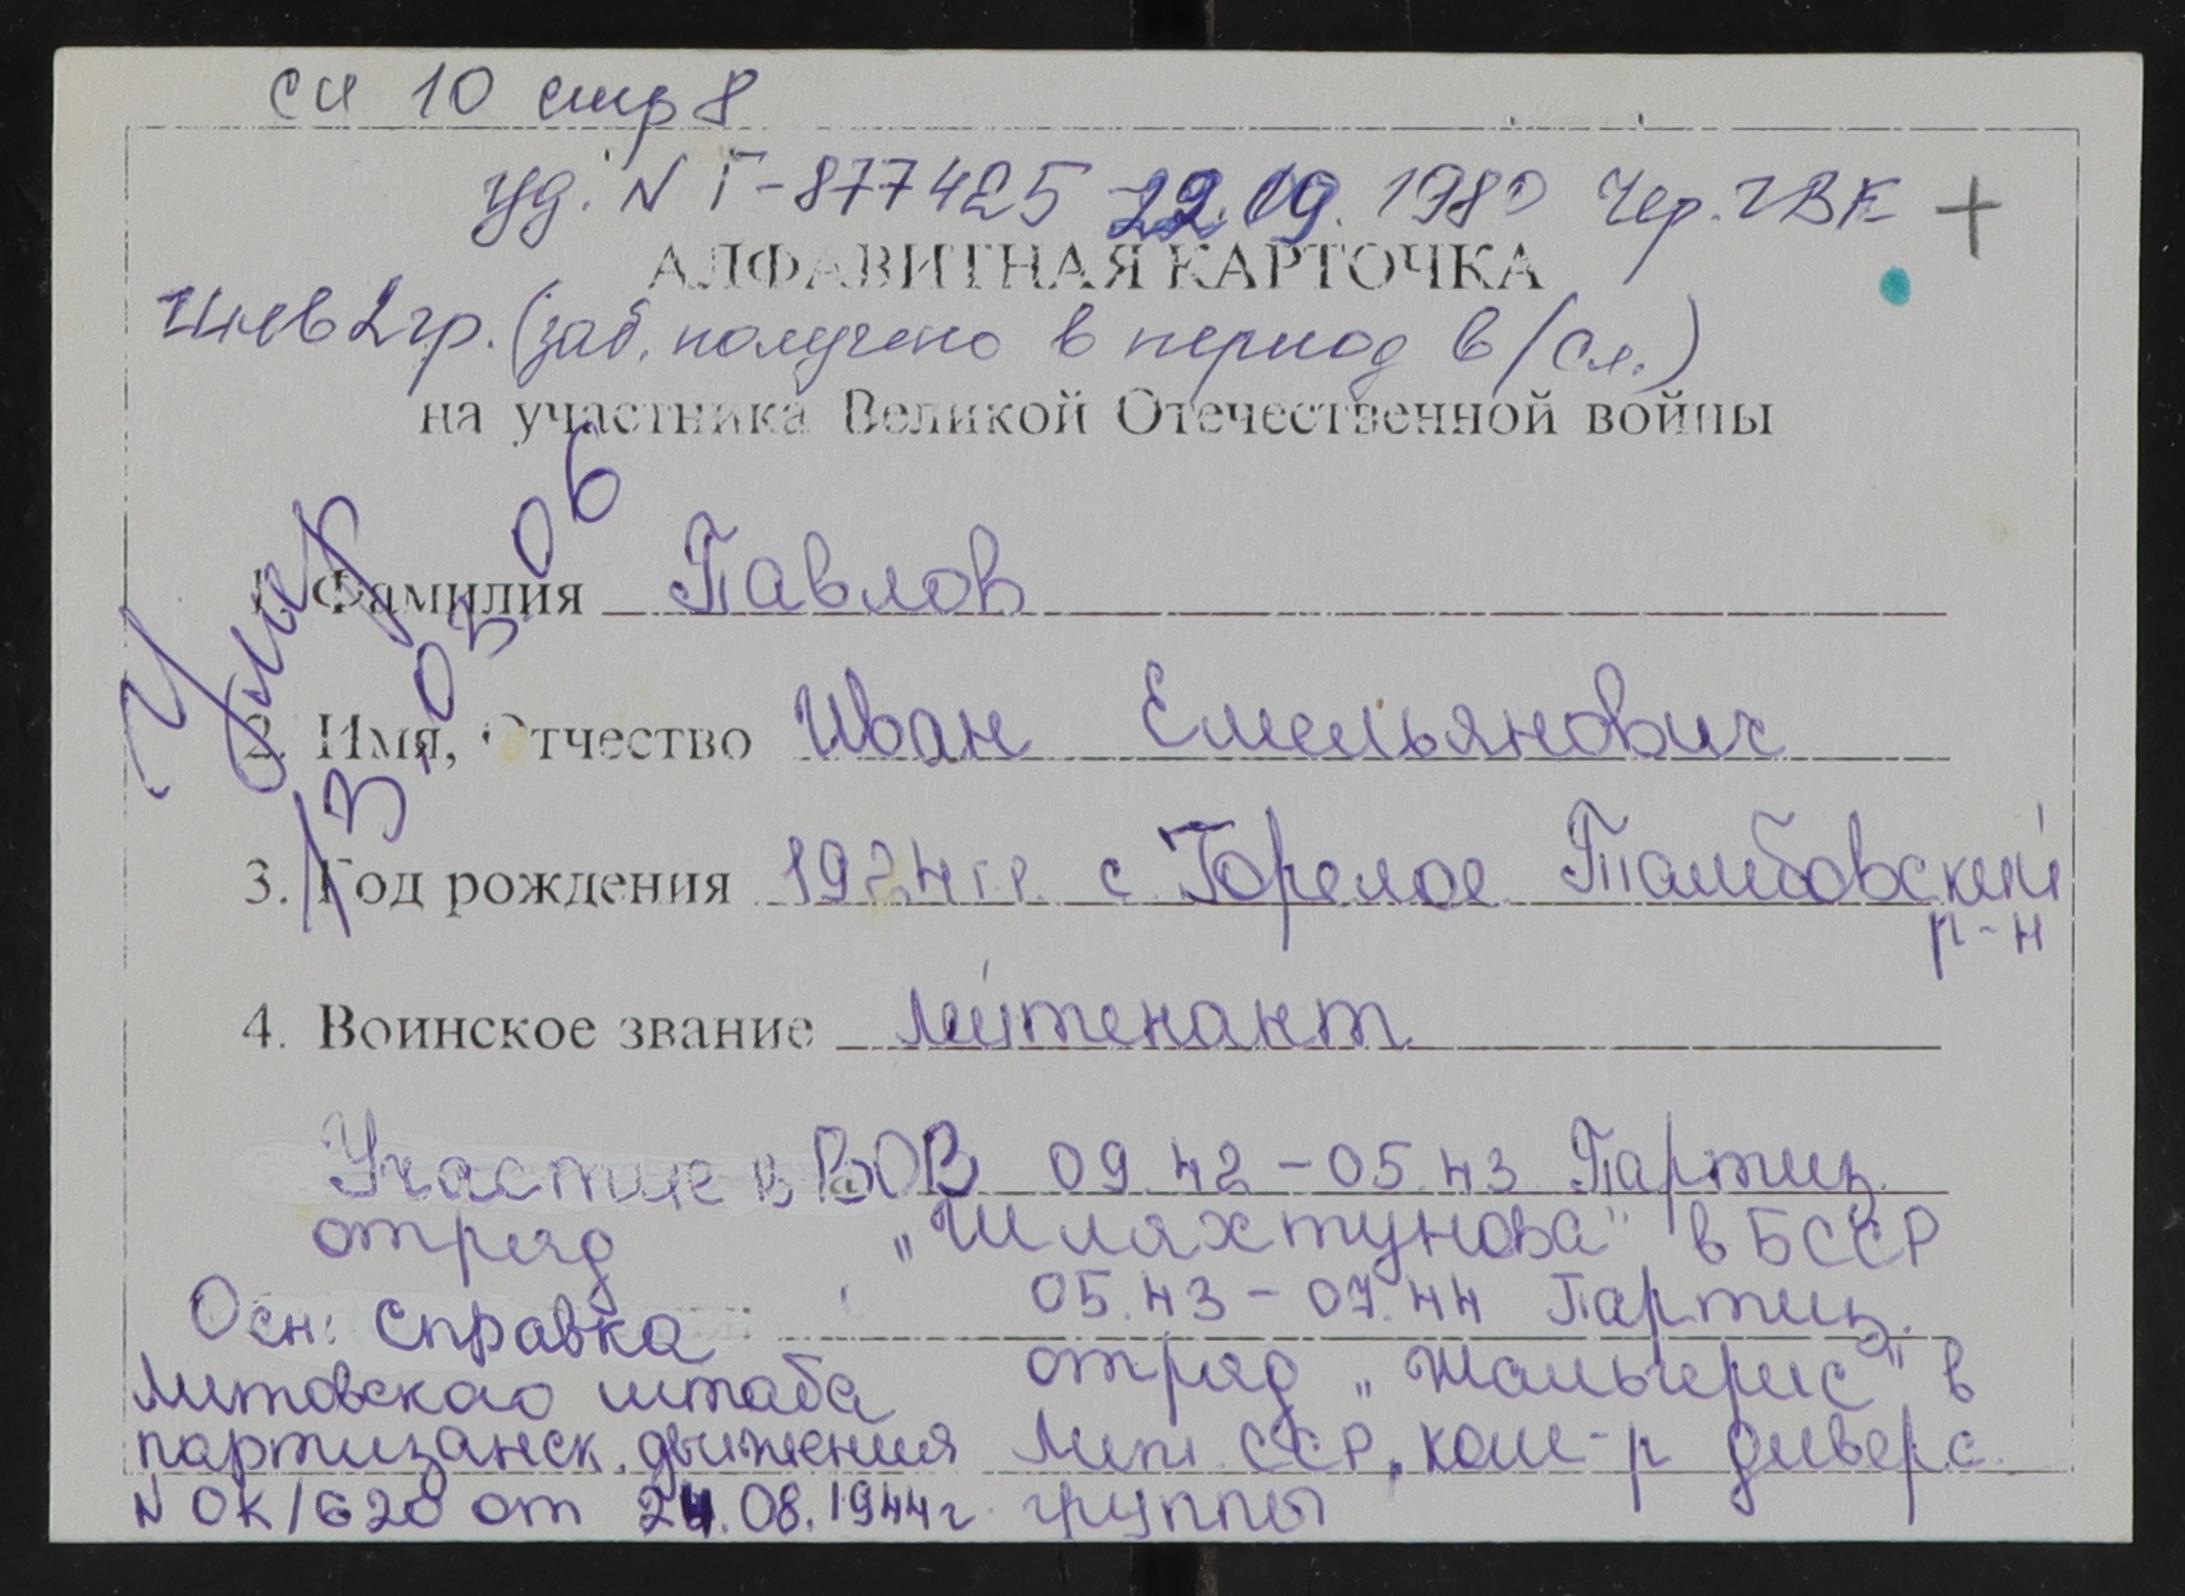 сп 10 стр 8
уд. N Г-877425 22.09.1980 Чер. ГВК +
АЛФАВИТНАЯ КАРТОЧКА
Инв 2 гр. (заб. получено в период в/сл.)
на участника Великой Отечественной войны
Умер
13.03.06
1. Фамилия Павлов
2. Имя, Отчество Иван Емельянович
3. Год рождения 1924 г.р. с. Горелое Тамбовский
р-н
4. Воинское звание лейтенант
Участие в ВОВ 09.42-05.43 Партиз.
отряд „Шляхтунова" в БССР
05.43-07.44 Партиз.
отряд „Жальгерис" в
Лит. ССР, ком-р диверс.
группы
Осн: Справка
Литовского штаба
партизанск. движения
N ОК/620 от 24.08.1944г.